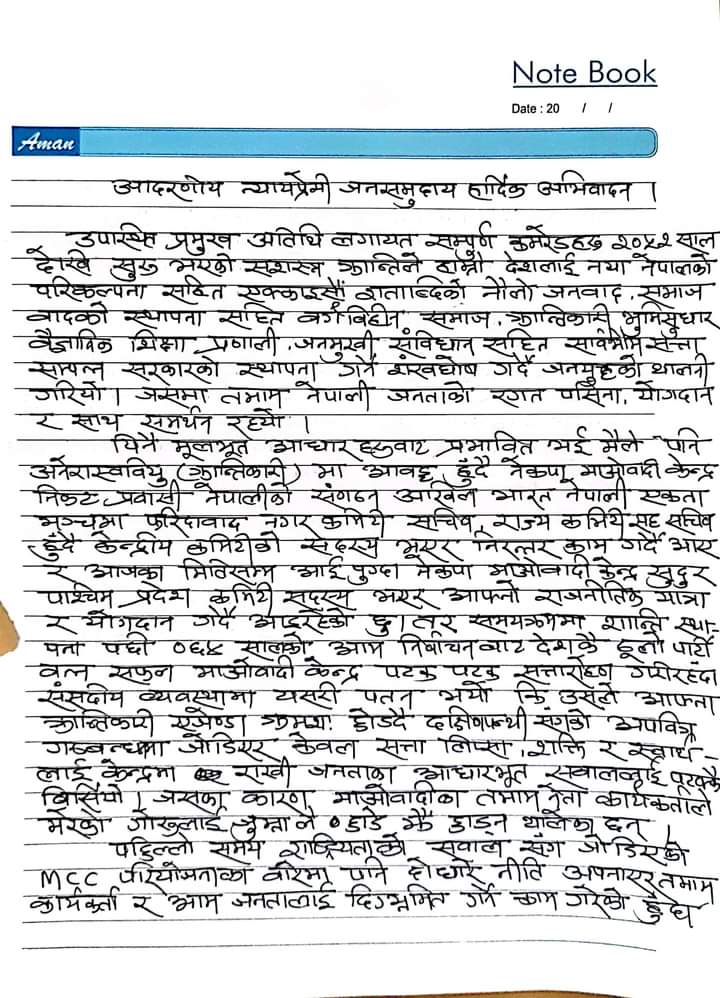 Note Book
Date : 20 / /
Aman
आदरणीय न्यायप्रेमी जनसमुदाय हार्दिक अभिवादन ।
उपास्थित प्रमुख अतिथि लगायत सम्पुर्ण कमरेडहरु २०५२ साल
देखि सुरु भएको सशस्त्र क्रान्तिले हाम्रो देशलाई नयाँ नेपालको
परिकल्पना सहित एक्काइसौं शताब्दिको नौलो जनवाद, समाज
वादको स्थापना सहित वर्ग विहीन समाज, क्रान्तिकारी भुमिसुधार
वैज्ञानिक शिक्षा प्रणाली, जनमुखी संविधान सहित सार्वभौम सत्ता
सम्पन्न सरकारको स्थापना गर्ने शंखघोष गर्दै जनयुद्दको थालनी
गरियो । जसमा तमाम नेपाली जनताको रगत पसिना, योगदान
र साथ समर्थन रहयो ।
यिनै मूलभूत आधार हरुबाट प्रभावित भई मैले पनि
अनेरास्ववियु (क्रान्तिकारी) मा आवद्द हुँदै नेकपा माओवादी केन्द्र
निकट प्रवासी नेपालीको संगठन अखिल भारत नेपाली एकता
मञ्चमा फरिदावाद नगर कमिटी सचिव, राज्य कमिटी सह सचिव
हुँदै केन्द्रीय कमिटीको सदस्य भएर निरन्तर काम गर्दै आए
र आजका मितिसम्म आई पुग्दा नेकपा माओवादी केन्द्र सुदुर
पाश्चिम प्रदेश कमिटी सदस्य भएर आफ्नो राजनीतिक यात्रा
र योगदान गर्दै आइरहेको छु । तर समयक्रममा शान्ति स्था-
पना पछी ०६४ सालको आम निर्वाचनबाट देशकै ठूलो पार्टी
बन्न सफल माओवादी केन्द्र पटक पटक सत्तारोहण गरीरहंदा
संसदीय व्यवस्थामा यसरी पतन भयो कि उसले आफ्ना
क्रान्तिकारी एजेण्डा क्रमशः छोडदै दक्षिणपन्थी संगको अपवित्र
गठबन्धमा जोडिएर केवल सत्ता लिप्सा, शक्ति र स्वार्थ-
लाई केन्द्रमा राखी जनताका आधारभूत सवाललाई पटक्कै
बिर्सियो । जसका कारण माओवादीका तमाम नेता कार्यकर्ताले
मरेको गोरुलाई जुम्राले छाडे झैं छाड्न थालेका छन्
पछिल्लो समय राष्ट्रियताको सवाल संग जोडिएको
MCC परियोजनाका बारेमा पनि दोधारे नीति अपनाएर तमाम
कार्यकर्ता र आम जनतालाई दिग्भ्रमित गर्ने काम गरेको हुँदा